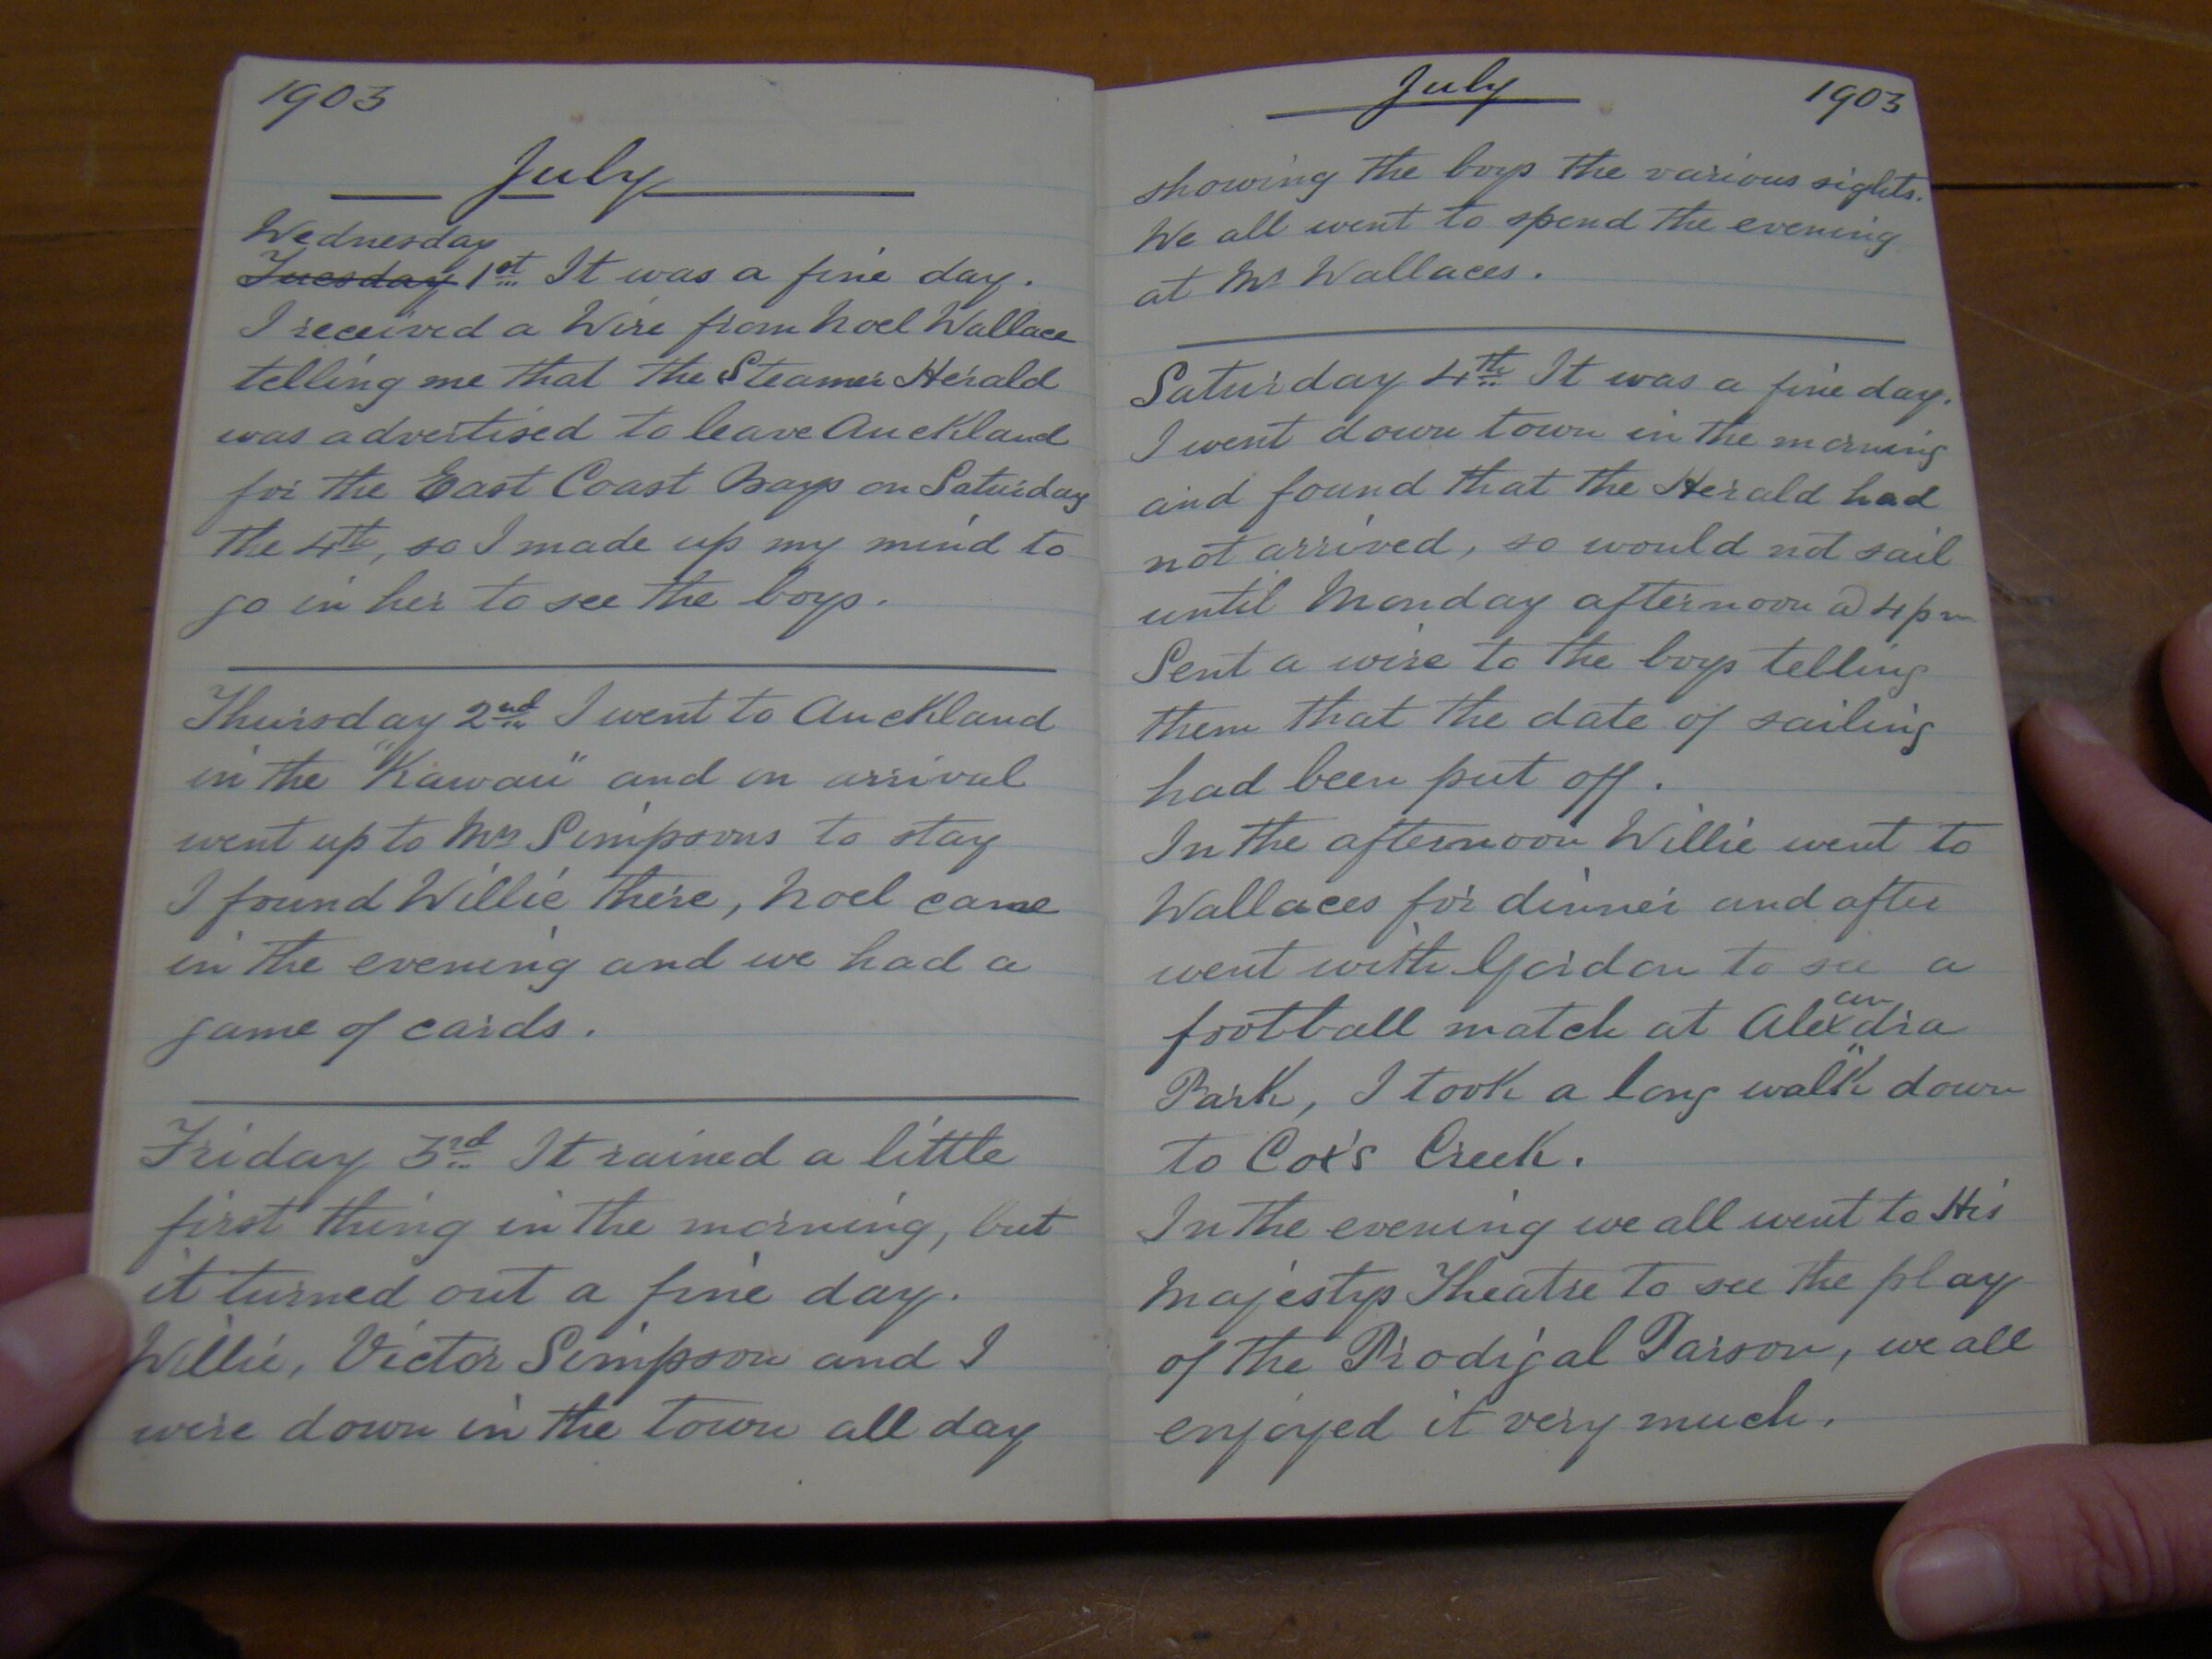 1903
July
Wednesday
Tuesday 1st It was a fine day.
I received a Wire from Noel Wallace
telling me that the Steamer Herald
was advertised to leave Auckland
for the East Coast Bays on Saturday
the 4th, so I made up my mind to
go in her to see the boys.
Thursday 2nd I went to Auckland
in the "Kawau" and on arrival
went up to Mrs Simpsons to stay
I found Willie there, Noel came
in the evening and we had a
game of cards.
Friday 3rd It rained a little
first thing in the morning, but
it turned out a fine day.
Willie, Victor Simpson and I
were down in the town all day
July 1903
showing the boys the various sights.
We all went to spend the evening
at Mrs Wallaces.
Saturday 4th It was a fine day.
I went down town in the morning
and found that the Herald had
not arrived, so would not sail
until Monday afternoon @ 4 pm
Sent a wire to the boys telling
them that the date of sailing
had been put off.
In the afternoon Willie went to
Wallaces for dinner and after
went with Gordon to see a
football match at Alexandia
Park, I took a long walk down
to Cox's Creek.
In the evening we all went to His
Majestys Theatre to see the play
of the Prodigal Parson, we all
enjoyed it very much.